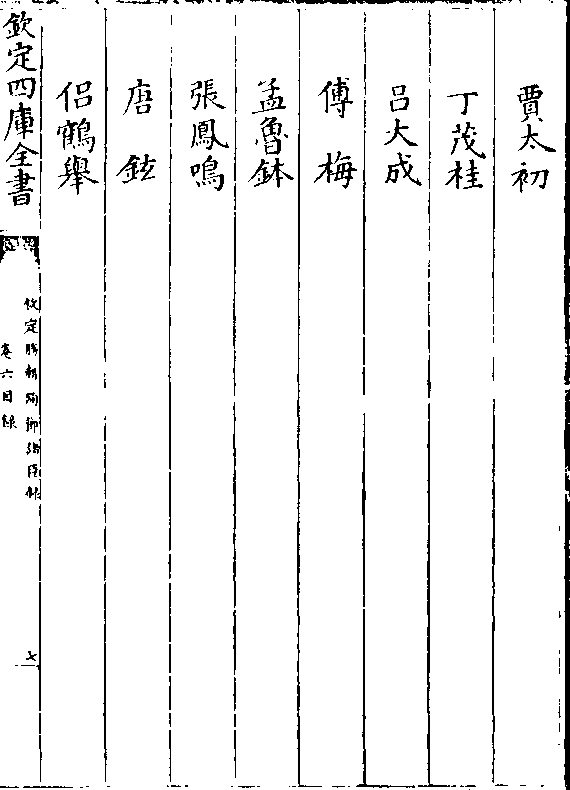 賈太初
丁茂桂
呂大成
傅梅
孟魯鉢
張鳳鳴
唐鉉
侶鶴舉
欽定四庫全書
欽定勝朝殉節諸臣錄
卷六目錄
七